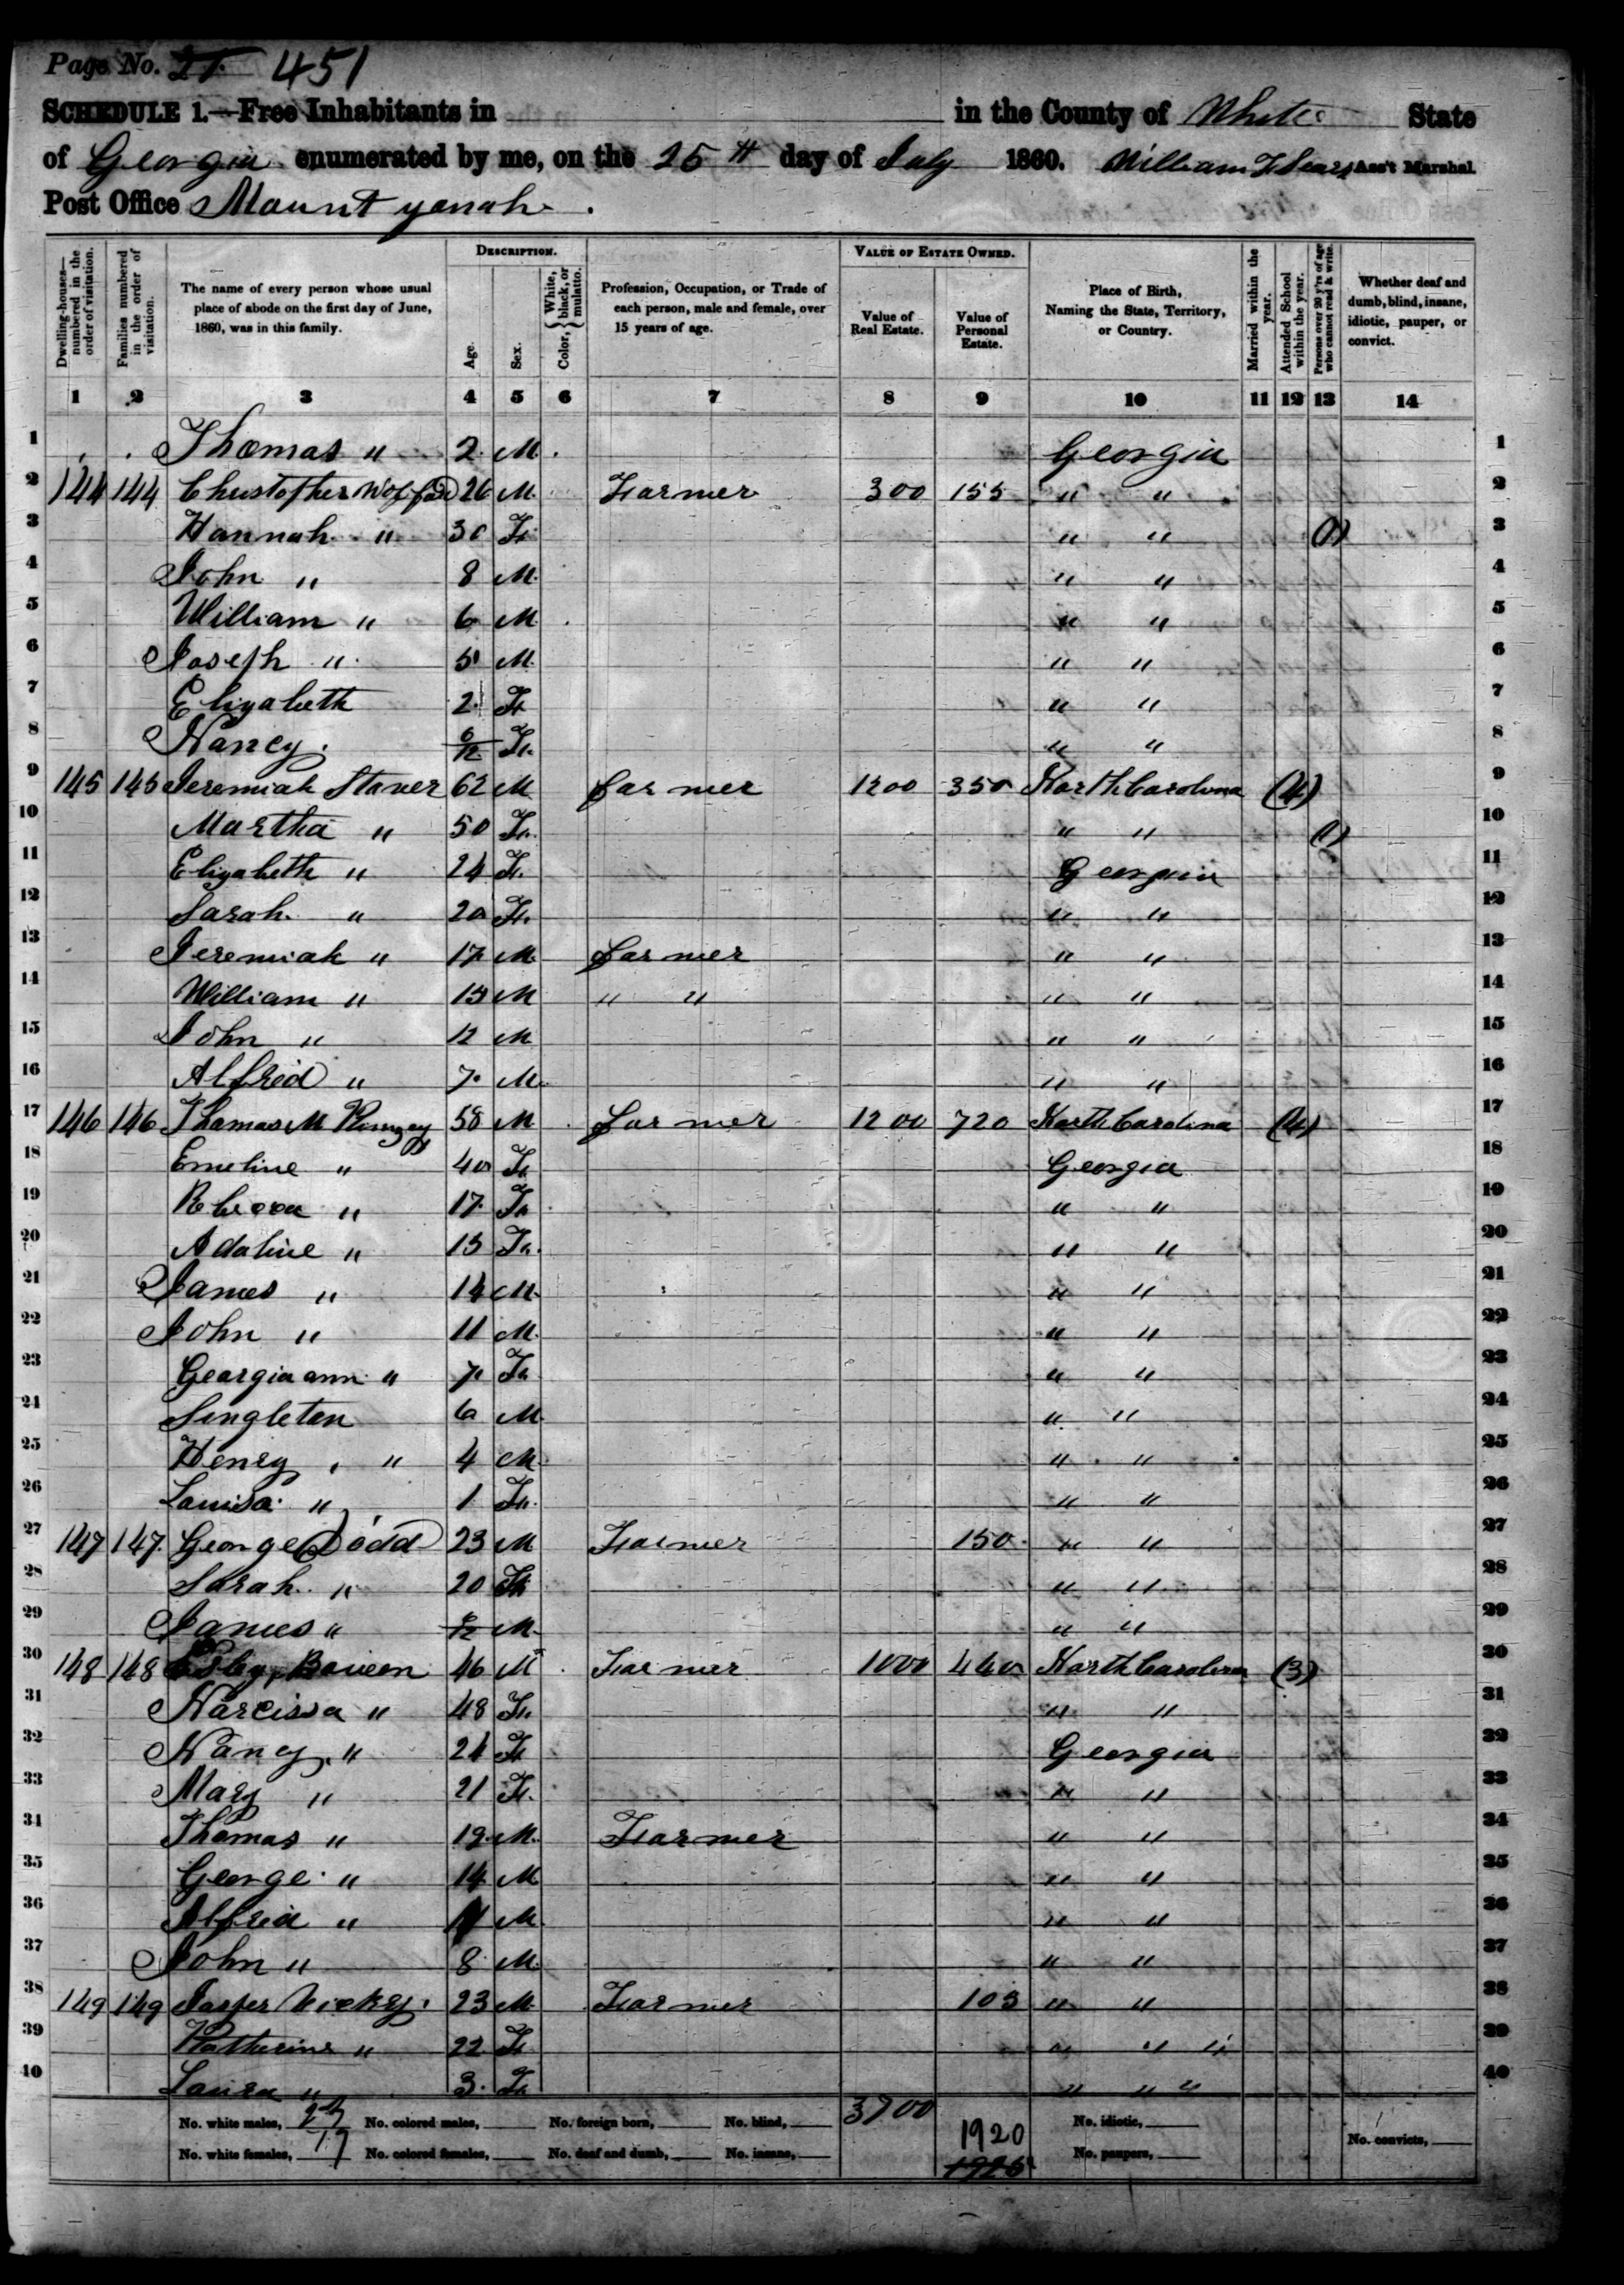 Page No. 21. 451
SCHEDULE 1.—Free Inhabitants in in the County of White State
of Georgia enumerated by me, on the 25th day of July 1860. William F Sears Ass't Marshal.
Post Office Mount yonah.
Dwelling-houses—numbered in the order of visitation.
Families numbered in the order of visitation.
The name of every person whose usual place of abode on the first day of June, 1860, was in this family.
DESCRIPTION.
Age.
Sex.
Color, { White, black, or mulatto.
Profession, Occupation, or Trade of each person, male and female, over 15 years of age.
VALUE OF ESTATE OWNED.
Value of Real Estate.
Value of Personal Estate.
Place of Birth, Naming the State, Territory, or Country.
Married within the year.
Attended School within the year.
Persons over 20 y'rs of age who cannot read & write.
Whether deaf and dumb, blind, insane, idiotic, pauper, or convict.
1 2 3 4 5 6 7 8 9 10 11 12 13 14
1 Thomas " 2 M. Georgia 1
2 144 144 Christopher Woffd 26 M. Farmer 300 155 " " 2
3 Hannah " 30 F. " " (1) 3
4 John " 8 M. " " 4
5 William " 6 M. " " 5
6 Joseph " 5 M. " " 6
7 Elizabeth 2 F. " " 7
8 Nancy 6/12 F. " " 8
9 145 145 Jeremiah Stover 62 M Farmer 1200 350 North Carolina (4) 9
10 Martha " 50 F. " " (1) 10
11 Elizabeth " 24 F. Georgia 11
12 Sarah " 20 F. " " 12
13 Jeremiah " 17 M. Farmer " " 13
14 William " 15 M " " " " 14
15 John " 12 M " " 15
16 Alfred " 7 M. " " 16
17 146 146 Thomas M Kimzey 58 M Farmer 1200 720 North Carolina (4) 17
18 Emeline " 40 F. Georgia 18
19 Rhecca " 17 F. " " 19
20 Adaline " 15 F. " " 20
21 James " 14 M. " " 21
22 John " 11 M. " " 22
23 Georgia ann " 7 F. " " 23
24 Singleton 6 M " " 24
25 Henry " 4 M. " " 25
26 Louisa " 1 F. " " 26
27 147 147 George Dodd 23 M Farmer 150 " " 27
28 Sarah " 20 F. " " 28
29 James " M. " " 29
30 148 148 Bowen 46 M Farmer 1000 440 North Carolina (3) 30
31 Narcissa " 48 F. " " 31
32 Nancy " 24 F. Georgia 32
33 Mary " 21 F. " " 33
34 Thomas " 19 M. Farmer " " 34
35 George " 14 M " " 35
36 Alfred " 11 M. " " 36
37 John " 8 M. " " 37
38 149 149 Jasper Vickry 23 M. Farmer 103 " " 38
39 Katherine " 22 F. " " " 39
40 Laura " 3 F. " " " 40
No. white males, No. colored males, No. foreign born, No. blind, 3700 No. idiotic,
No. white females, 17 No. colored females, No. deaf and dumb, No. insane, 1920 No. paupers, No. convicts,